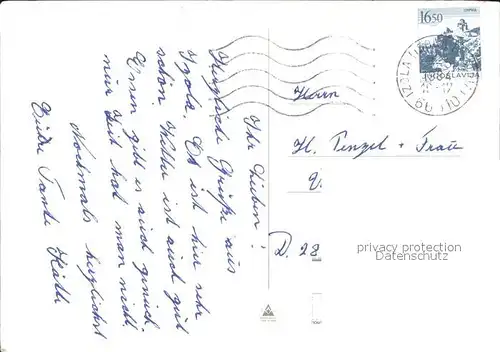 Ihr Lieben!
Herzliche Grüße aus
Izola. Es ist hier sehr
schön. Wetter ist auch gut
Essen gibt es auch genug.
nur Zeit hat man nicht.
Nochmals herzlichst
Eure Tante Käthe
16.50
JUGOSLAVIJA
IZOLA
Herrn
H. Penzel + Frau
D. 28
privacy protection
Datenschutz